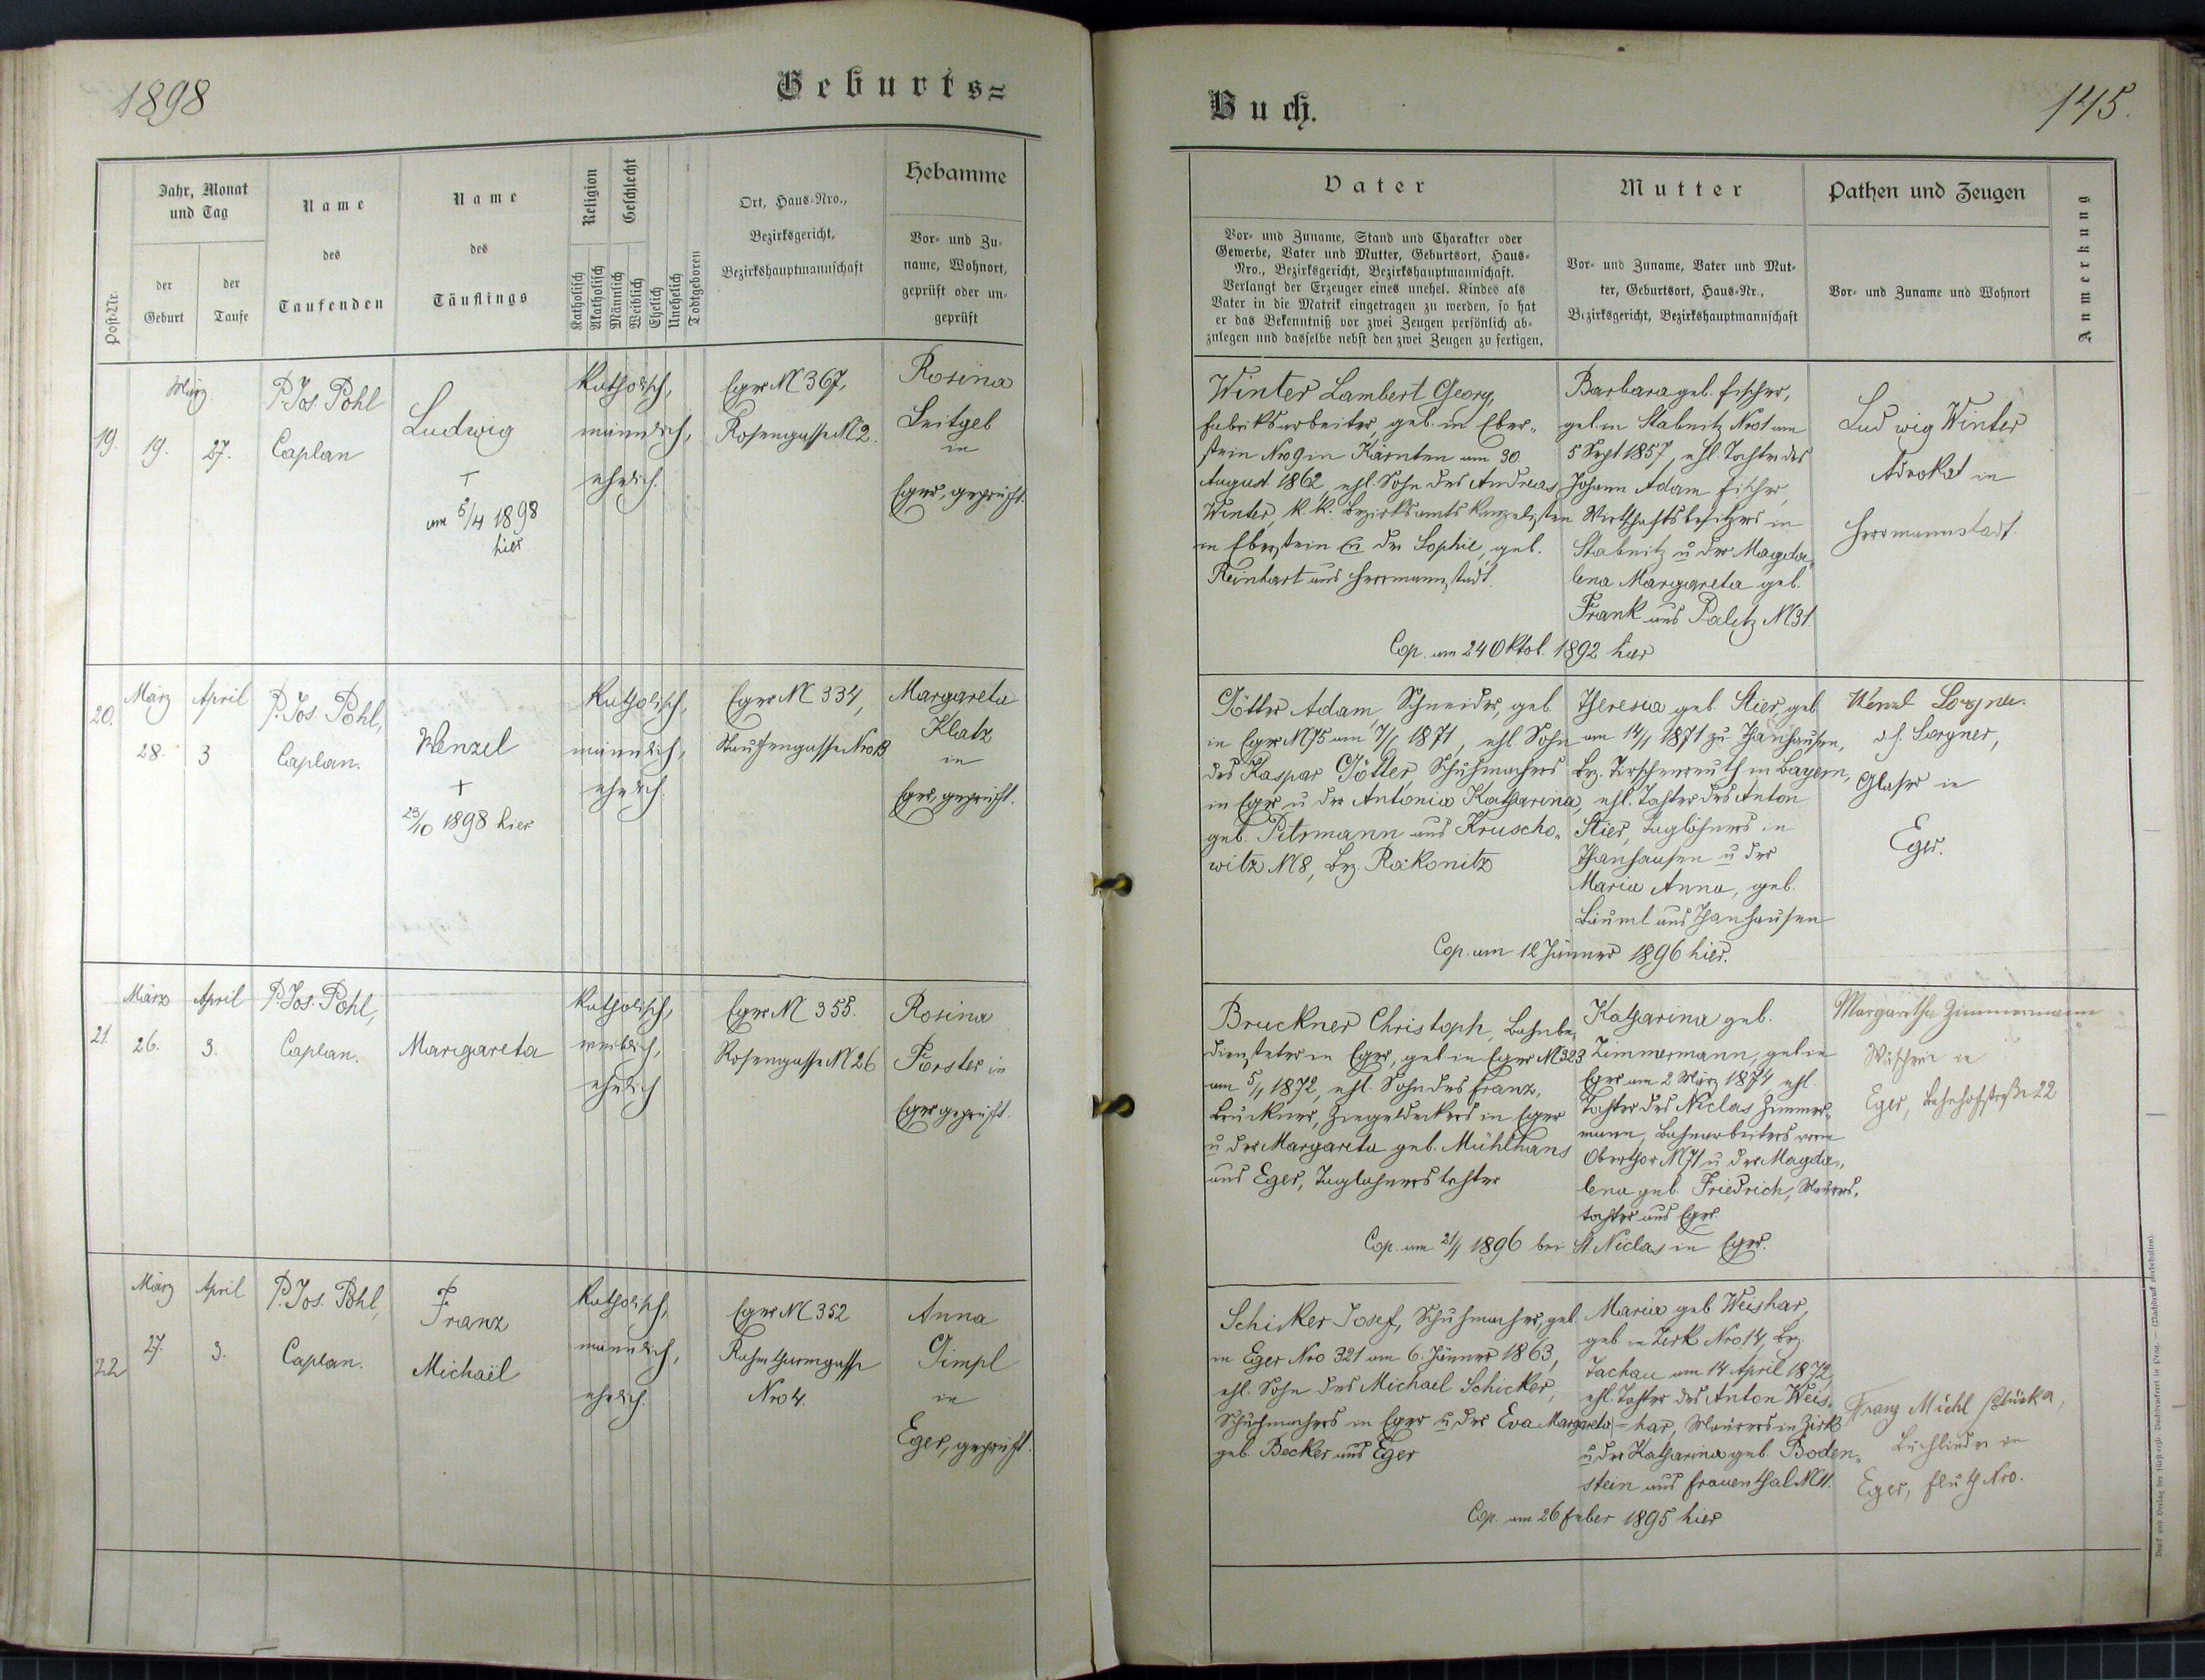 1898
Geburts=
Jahr, Monat
und Tag
der
Geburt
der
Taufe
Post-Nr.
Name
des
Taufenden
Name
des
Täuflings
Religion
Geschlecht
Katholisch
Akatholisch
Männlich
Weiblich
Ehelich
Unehelich
Todtgeboren
Ort, Haus-Nro.,
Bezirksgericht,
Bezirkshauptmannschaft
Hebamme
Vor- und Zu-
name, Wohnort,
geprüft oder un-
geprüft
19.
März
19.
27.
P. Jos. Pohl
Caplan
Ludwig
+
am 5/4 1898
hier
Katholisch,
männlich,
ehelich.
Eger N 367,
Rosengasse N 2.
Rosina
Leitgeb
in
Eger, geprüft.
20.
März
28.
April
3
P. Jos Pohl,
Caplan.
Wenzel
+
23/10 1898 hier
Katholisch,
männlich,
ehelich.
Eger N 334,
Nro 13
Margareta
Klatz
in
Eger, geprüft.
21.
März
26.
April
3.
P. Jos. Pohl,
Caplan.
Margareta
Katholisch,
weiblich,
ehelich
Eger N 355.
Rosengasse N 26
Rosina
Forster in
Eger geprüft.
22
März
27.
April
3.
P. Jos. Pohl,
Caplan.
Franz
Michaël
Katholisch,
männlich,
ehelich.
Eger N 352
Rahmthurmgasse
Nro 4.
Anna
Gimpl
in
Eger, geprüft.
Buch.
145.
Vater
Vor- und Zuname, Stand und Charakter oder
Gewerbe, Vater und Mutter, Geburtsort, Haus-
Nro., Bezirksgericht, Bezirkshauptmannschaft.
Verlangt der Erzeuger eines unehel. Kindes als
Vater in die Matrik eingetragen zu werden, so hat
er das Bekenntniß vor zwei Zeugen persönlich ab-
zulegen und dasselbe nebst den zwei Zeugen zu fertigen.
Mutter
Vor- und Zuname, Vater und Mut-
ter, Geburtsort, Haus-Nr.,
Bezirksgericht, Bezirkshauptmannschaft
Pathen und Zeugen
Vor- und Zuname und Wohnort
Anmerkung
Winter Lambert Georg,
Fabriksarbeiter, geb. in Eber„
stein Nro 9 in Kärnten am 30.
August 1862, ehl. Sohn des Andreas
Winter, k. k. Bezirksamts Kanzelisten
in Eberstein u der Sophie, geb.
Reinhart aus Herrmannstadt.
Barbara geb. Fischer,
geb. in Stabnitz Nro 1 am
5 Sept 1857, ehl. Tochter des
Johann Adam Fischer,
Wirtschaftsbesitzers in
Stabnitz u der Magda„
lena Margareta geb.
Frank aus Palitz N 31.
Cop. am 24 Oktob. 1892 hier
Ludwig Winter
Advokat in
Herrmannstadt.
Götter Adam, Schneider, geb.
in Eger N 75 am 7/1 1871, ehl. Sohn
des Kaspar Götter, Schuhmachers
in Eger u der Antonia Katharina,
geb. Petrmann aus Kruscho„
witz N 8, Bez. Rakonitz
Theresia geb. Stier, geb.
am 14/1 1871 zu Thanhausen,
Bez. Tirschenreuth in Bayern,
ehl. Tochter des Anton
Stier, Taglöhners in
Thanhausen u der
Maria Anna, geb.
Bäuml aus Thanhausen
Cop. am 12 Jänner 1896 hier.
Glaser in
Eger.
Bruckner Christoph, Bahnbe„
diensteter in Eger, geb in Eger N 323
am 5/1 1872, ehl. Sohn des Franz
Bruckner, Ziegeldeckers in Eger
u der Margareta geb. Mühlhans
aus Eger, Taglöhnerstochter
Katharina geb.
Zimmermann, geb in
Eger am 2 März 1874, ehl.
Tochter des Niclas Zimmer„
mann, Bahnarbeiters vorm
Oberthor N 71 u der Magda„
lena geb. Friedrich, Maurers„
tochter aus Eger.
Cop. am 21/1 1896 bei St Niclas in Eger.
Margaretha Zimmermann
in
Eger, Bahnhofstraße 22
Schicker Josef, Schuhmacher, geb.
in Eger Nro 321 am 6. Jänner 1863,
ehl. Sohn des Michael Schicker,
Schuhmachers in Eger u der Eva Margareta
geb. Becker aus Eger
Maria geb Weishar,
geb. in Zirk Nro 14, Bez.
Tachau am 14 April 1872,
ehl. Tochter des Anton Weis„
har, Maurers in Zirk
u der Katharina geb. Boden„
stein aus Frauenthal N 11.
Cop. am 26 Feber 1895 hier
Franz Michl
Buchbinder in
Eger,